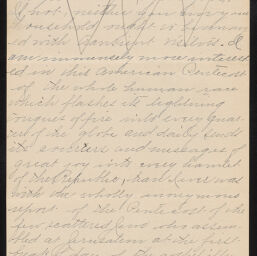 If not, neither you nor your
household ought to be favor-
ed with
am immensely more interest
ed in this American Pentecost
of the whole human race
which flashes its lightning
tongues of fire into every quar
ter of the globe and daily sends
its and messages of
great joy into every hamlet
of the Republic, than I ever was
with the wholly anonymous
report of the Pentecost of the
few scattered Jews who assem
bled at Jerusalem at the first